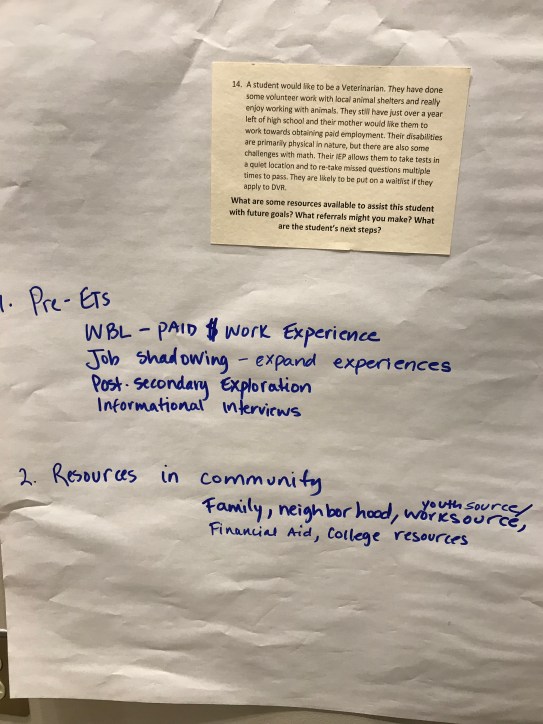 14. A student would like to be a Veterinarian. They have done
some volunteer work with local animal shelters and really
enjoy working with animals. They still have just over a year
left of high school and their mother would like them to
work towards obtaining paid employment. Their disabilities
are primarily physical in nature, but there are also some
challenges with math. Their IEP allows them to take tests in
a quiet location and to re-take missed questions multiple
times to pass. They are likely to be put on a waitlist if they
apply to DVR.
What are some resources available to assist this student
with future goals? What referrals might you make? What
are the student's next steps?
1. Pre-ETS
WBL - PAID $ Work Experience
Job shadowing - expand experiences
Post-secondary Exploration
Informational Interviews
2. Resources in community
Family, neighborhood, youthsource/
worksource,
Financial Aid, College resources